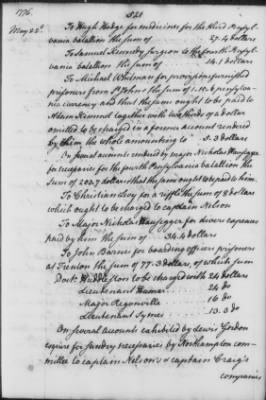 1776. 520
May 22d.
To Hugh Hodge for medicines for the third Pensyl-
vania batalion the sum of 27.4 dollars
To Samuel Kennedy surgeon to the fourth Pensyl-
vania batalion the sum of 14.1 dollars
To Michael Whitman for provisions furnished
prisoners from St Johns the sum of pensylva-
nia currency and that the sum ought to be paid to
Adam Reemond together with two thirds of a dollar
omitted to be charged in a former account rendered
by them the whole amounting to 5.3 dollars
On several accounts rendered by major Nicholas Haussegger
for necessaries for the fourth Pensylvania batalion the
sum of dollars that the sum ought to be paid to him
To Christian Foy for a riffle the sum of 8 dollars
which ought to be charged to captain Nelson
To Major Nicholas Haussegger for divers expences
paid by him the sum of 34.4 dollars
To John Barns for boarding officer prisoners
at Trenton the sum of 77.3 dollars, of which sum
Doctr Huddleston to be charged with 24 dollars
Lieutenant Hamar 24 do
Major Regonville 16 do
Lieutenant Symes 13.3 do
On several accounts exhibited by Lewis Gordon
esquire for sundry necessaries by Northampton com-
mittee to captain Nelson's & captain Craig's
companies